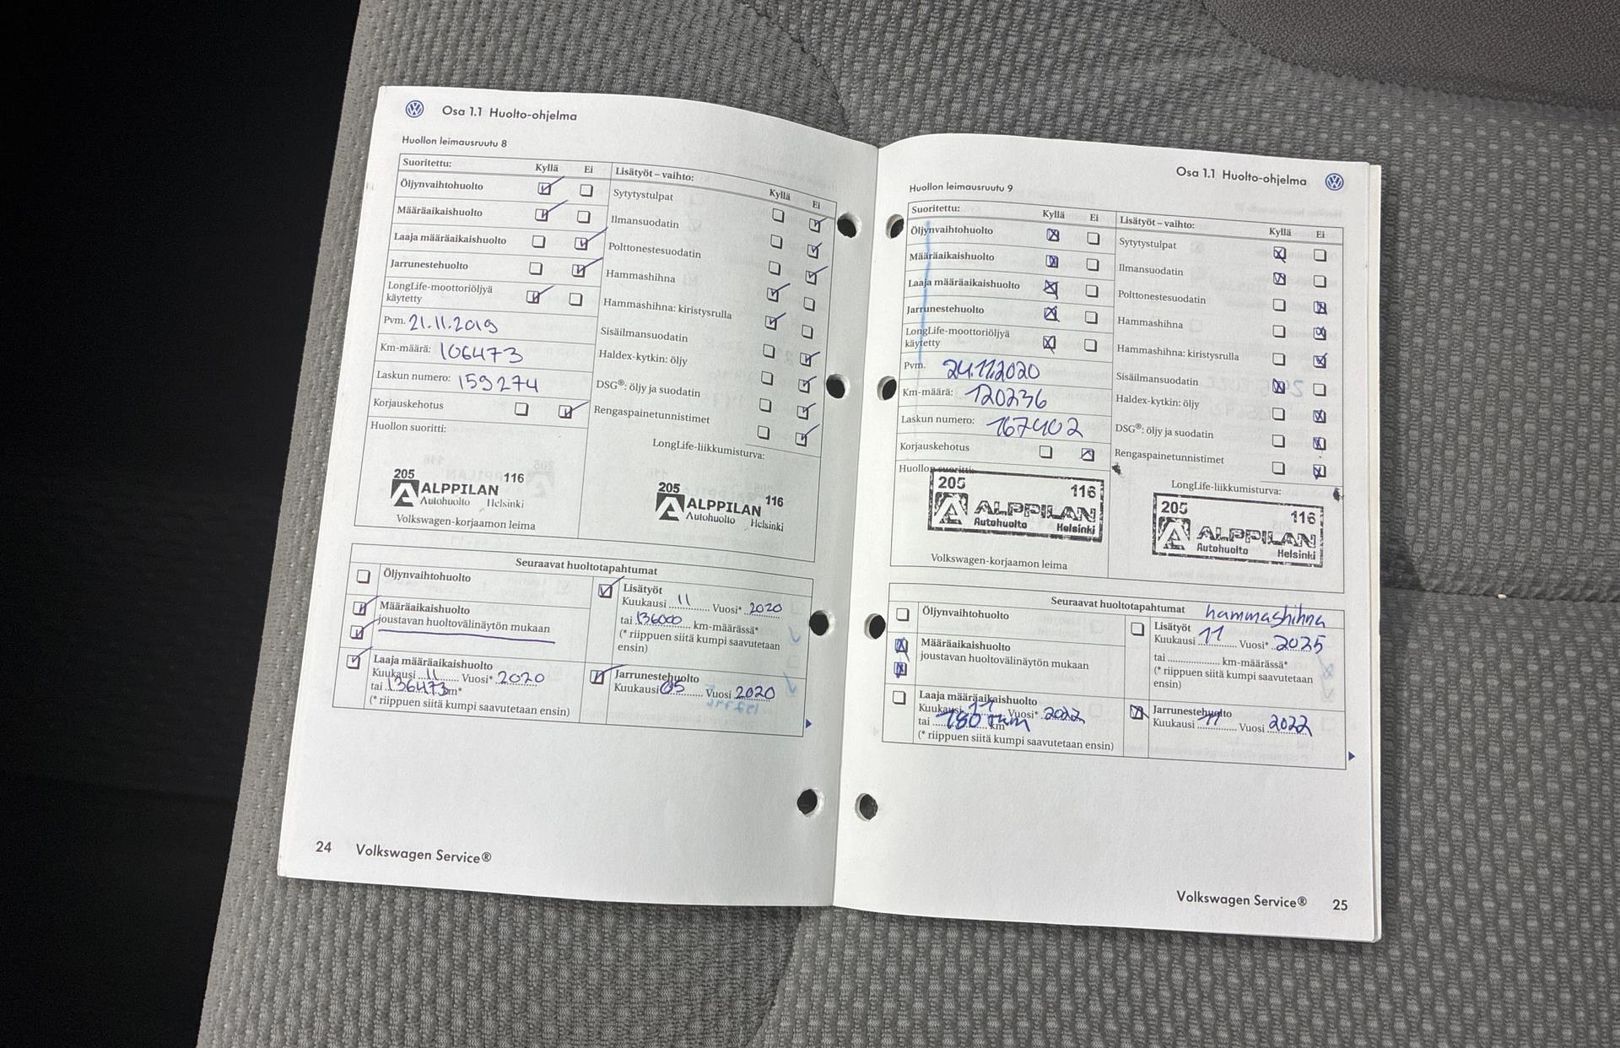 Osa 1.1 Huolto-ohjelma
Huollon leimausruutu 8
Suoritettu: Kyllä Ei
Öljynvaihtohuolto
Määräaikaishuolto
Laaja määräaikaishuolto
Jarrunestehuolto
LongLife-moottoriöljyä
käytetty
Pvm. 21.11.2019
Km-määrä: 106473
Laskun numero: 159274
Korjauskehotus
Huollon suoritti:
205 116
ALPPILAN
Autohuolto Helsinki
Volkswagen-korjaamon leima
Lisätyöt – vaihto: Kyllä Ei
Sytytystulpat
Ilmansuodatin
Polttonestesuodatin
Hammashihna
Hammashihna: kiristysrulla
Sisäilmansuodatin
Haldex-kytkin: öljy
DSG®: öljy ja suodatin
Rengaspainetunnistimet
LongLife-liikkumisturva:
205 116
ALPPILAN
Autohuolto Helsinki
Seuraavat huoltotapahtumat
Öljynvaihtohuolto
Määräaikaishuolto
joustavan huoltovälinäytön mukaan
Laaja määräaikaishuolto
Kuukausi 11 Vuosi* 2020
tai 136473 km*
(* riippuen siitä kumpi saavutetaan ensin)
Lisätyöt
Kuukausi 11 Vuosi* 2020
tai 136000 km-määrässä*
(* riippuen siitä kumpi saavutetaan
ensin)
Jarrunestehuolto
Kuukausi 05 Vuosi 2020
24 Volkswagen Service®
Osa 1.1 Huolto-ohjelma
Huollon leimausruutu 9
Suoritettu: Kyllä Ei
Öljynvaihtohuolto
Määräaikaishuolto
Laaja määräaikaishuolto
Jarrunestehuolto
LongLife-moottoriöljyä
käytetty
Pvm. 24.11.2020
Km-määrä: 120236
Laskun numero: 167402
Korjauskehotus
Huollon suoritti:
205 116
ALPPILAN
Autohuolto Helsinki
Volkswagen-korjaamon leima
Lisätyöt – vaihto: Kyllä Ei
Sytytystulpat
Ilmansuodatin
Polttonestesuodatin
Hammashihna
Hammashihna: kiristysrulla
Sisäilmansuodatin
Haldex-kytkin: öljy
DSG®: öljy ja suodatin
Rengaspainetunnistimet
LongLife-liikkumisturva:
205 116
ALPPILAN
Autohuolto Helsinki
Seuraavat huoltotapahtumat hammashihna
Öljynvaihtohuolto
Määräaikaishuolto
joustavan huoltovälinäytön mukaan
Laaja määräaikaishuolto
Kuukausi 11 Vuosi* 2022
tai 180 km
(* riippuen siitä kumpi saavutetaan ensin)
Lisätyöt
Kuukausi 11 Vuosi* 2025
tai km-määrässä*
(* riippuen siitä kumpi saavutetaan
ensin)
Jarrunestehuolto
Kuukausi 11 Vuosi 2022
Volkswagen Service® 25